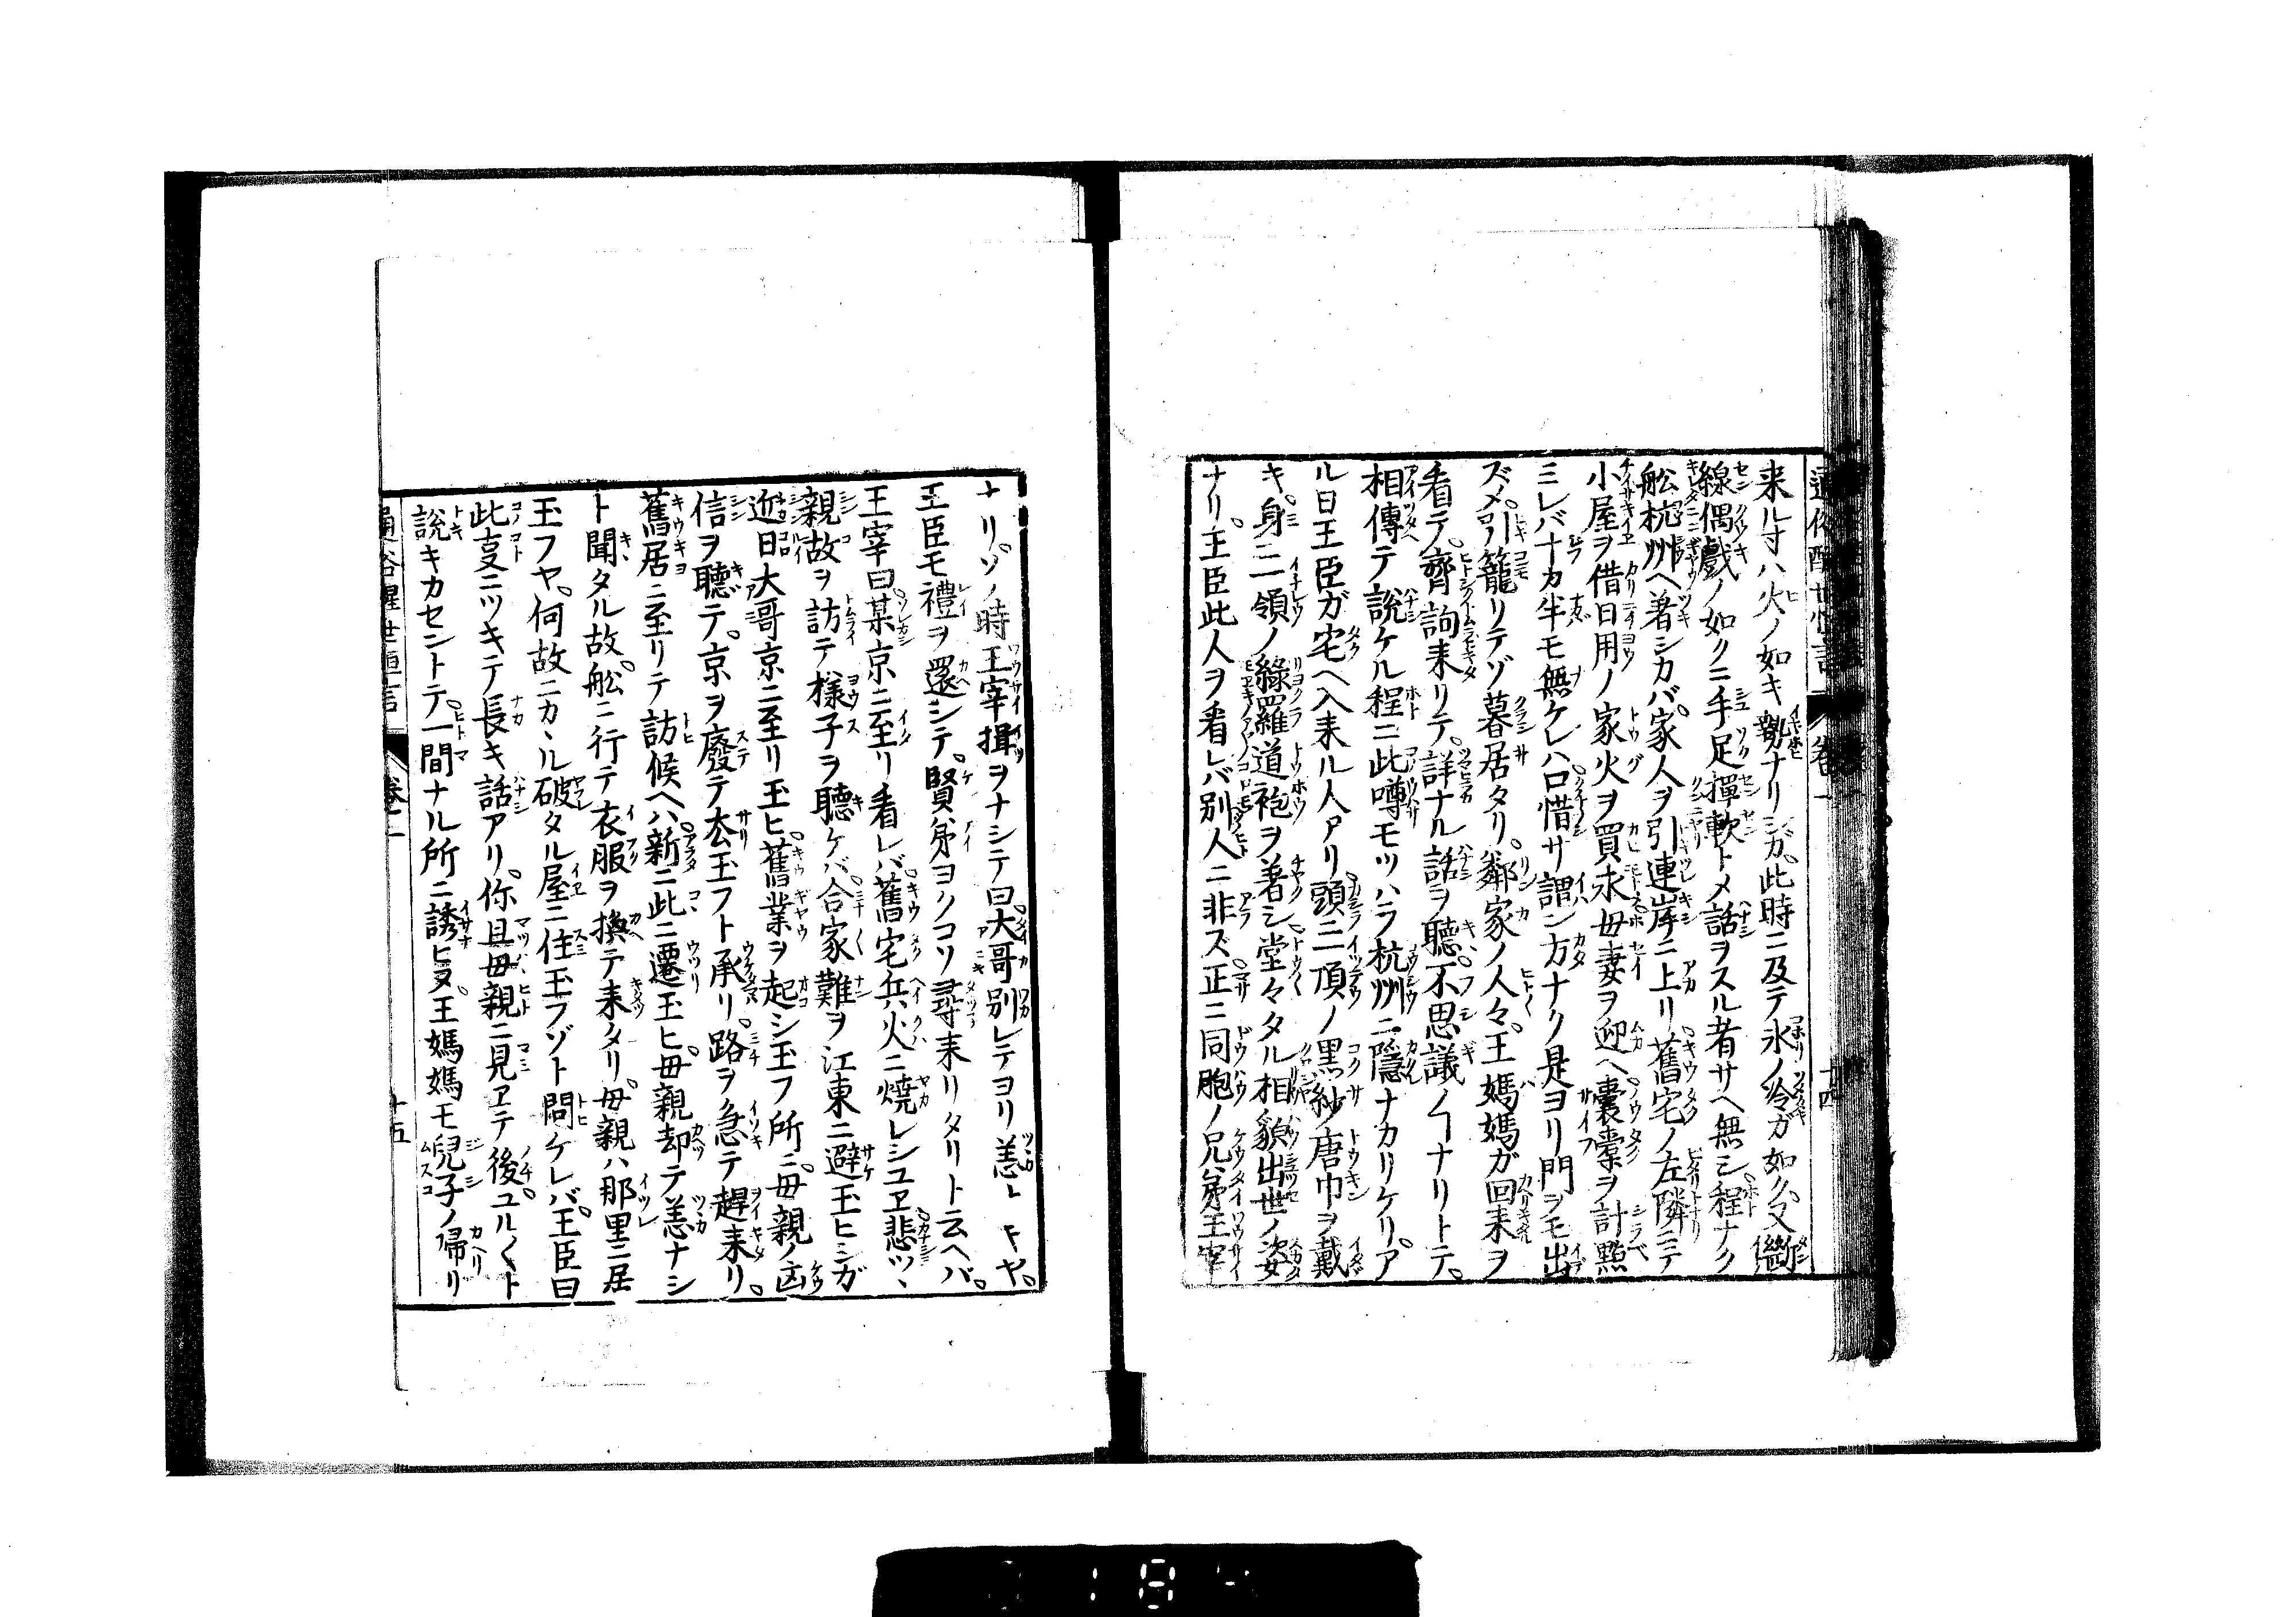 来ル寸ハ火ノ如キ勢ナリシガ。此時ニ及テ氷ノ冷ガ如ク。又斷
線偶戯ノ如クニ手足撣軟トメ話ヲスル者サヘ無シ。程ナク
舩杭州ヘ著シカバ。家人ヲ引連岸ニ上リ。舊宅ノ左隣ニテ
小屋ヲ借日用ノ家火ヲ買求母妻ヲ迎ヘ。囊槖ヲ計點
ミレバ十カ半モ無ケレハ口惜サ謂ン方ナク是ヨリ門ヲモ出
ズメ。引籠リテゾ暮居タリ。鄰家ノ人々。王媽媽ガ回来ヲ
看テ。齊詢来リテ。詳ナル話ヲ聴。不思議ノヿナリトテ。
相傳テ說ケル程ニ此噂モツハラ杭州ニ隱ナカリケリ。ア
ル日王臣ガ宅ヘ入来ル人アリ。頭ニ一頂ノ黒紗唐巾ヲ戴
キ。身ニ一領ノ綠羅道袍ヲ著シ。堂々タル相貌出世ノ姿
ナリ。王臣此人ヲ看レバ別人ニ非ズ。正ニ同胞ノ兄弟王宰
通俗醒世恒言 卷一 十四
ナリ。ソノ時王宰揖ヲナシテ曰。大哥別レテヨリ恙ヒキヤ。
王臣モ禮ヲ還シテ。賢弟ヨクコソ尋来リタリト云ヘバ。
王宰曰。某京ニ至リ看レバ。舊宅兵火ニ燒レシユヱ悲ツヽ
親故ヲ訪テ様子ヲ聴ケバ。合家難ヲ江東ニ避玉ヒシガ
近日大哥京ニ至リ玉ヒ。舊業ヲ起シ玉フ所ニ。母親ノ凶
信ヲ聴テ。京ヲ廢テ去玉フト承リ。路ヲ急テ趕来リ。
舊居ニ至リテ訪候ヘハ。新ニ此ニ遷玉ヒ。母親却テ恙ナシ
ト聞タル故。舩ニ行テ衣服ヲ換テ来タリ。母親ハ那里ニ居
玉フヤ。何故ニカヽル破タル屋ニ住玉フゾト問ケレバ。王臣曰
此㕝ニツキテ長キ話アリ。你且母親ニ見ヱテ後。ユル〱ト
說キカセントテ。一間ナル所ニ誘ヒヌ。王媽媽モ兒子ノ帰リ
通俗醒世恒言 卷一 十五